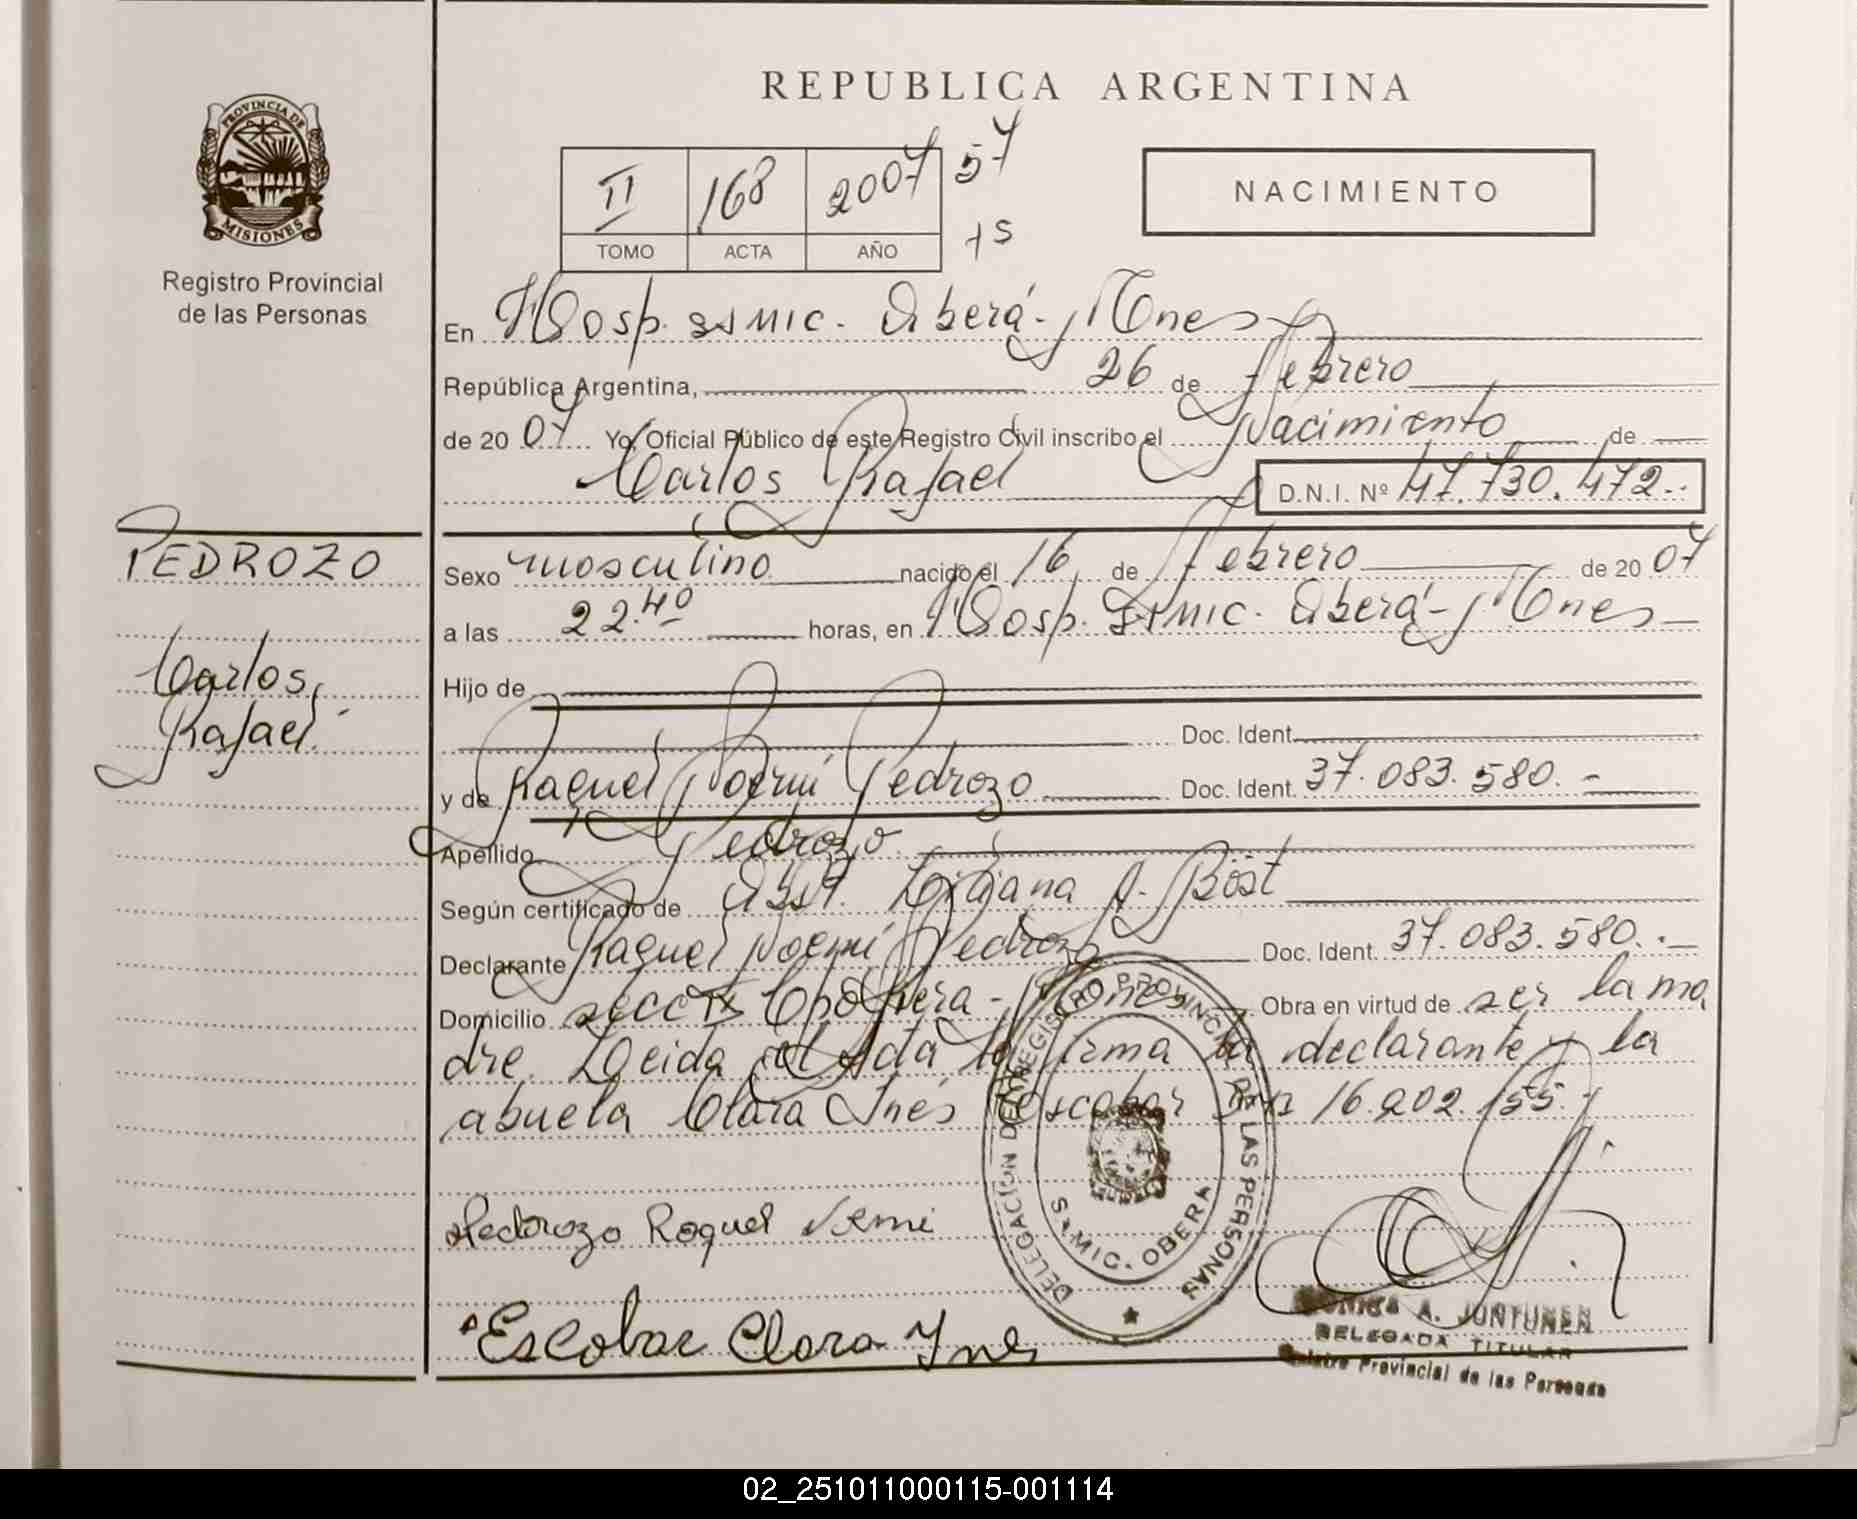 REPUBLICA ARGENTINA
PROVINCIA DE
MISIONES
Registro Provincial
de las Personas
II 168 2007 57
TOMO ACTA AÑO 15
NACIMIENTO
En Hosp. SAMIC. Oberá - Mnes
República Argentina, 26 de Febrero
de 2007 Yo, Oficial Público de este Registro Civil inscribo el Nacimiento de
Carlos Rafael D.N.I. Nº 47.730.472.-
PEDROZO
Carlos
Rafael
Sexo masculino nacido el 16 de Febrero de 2007
a las 22.40 horas, en Hosp. SAMIC. Oberá - Mnes
Hijo de
Doc. Ident.
y de Raquel Noemi Pedrozo Doc. Ident. 37.083.580.-
Apellido Pedrozo
Según certificado de Obst. Liliana A. Böst
Declarante Raquel Noemí Pedrozo Doc. Ident. 37.083.580.-
Domicilio secc IX Obra en virtud de ser la ma
dre. Leida el Acta la firma la declarante y la
abuela Clara Inés Escobar 16.202.155.-
Pedrozo Raquel Noemi
Escobar Clara Ines
DELEGACION DEL REGISTRO PROVINCIAL DE LAS PERSONAS
SAMIC. OBERA
MONICA A. JUNTUNEN
DELEGADA TITULAR
Registro Provincial de las Personas
02_251011000115-001114